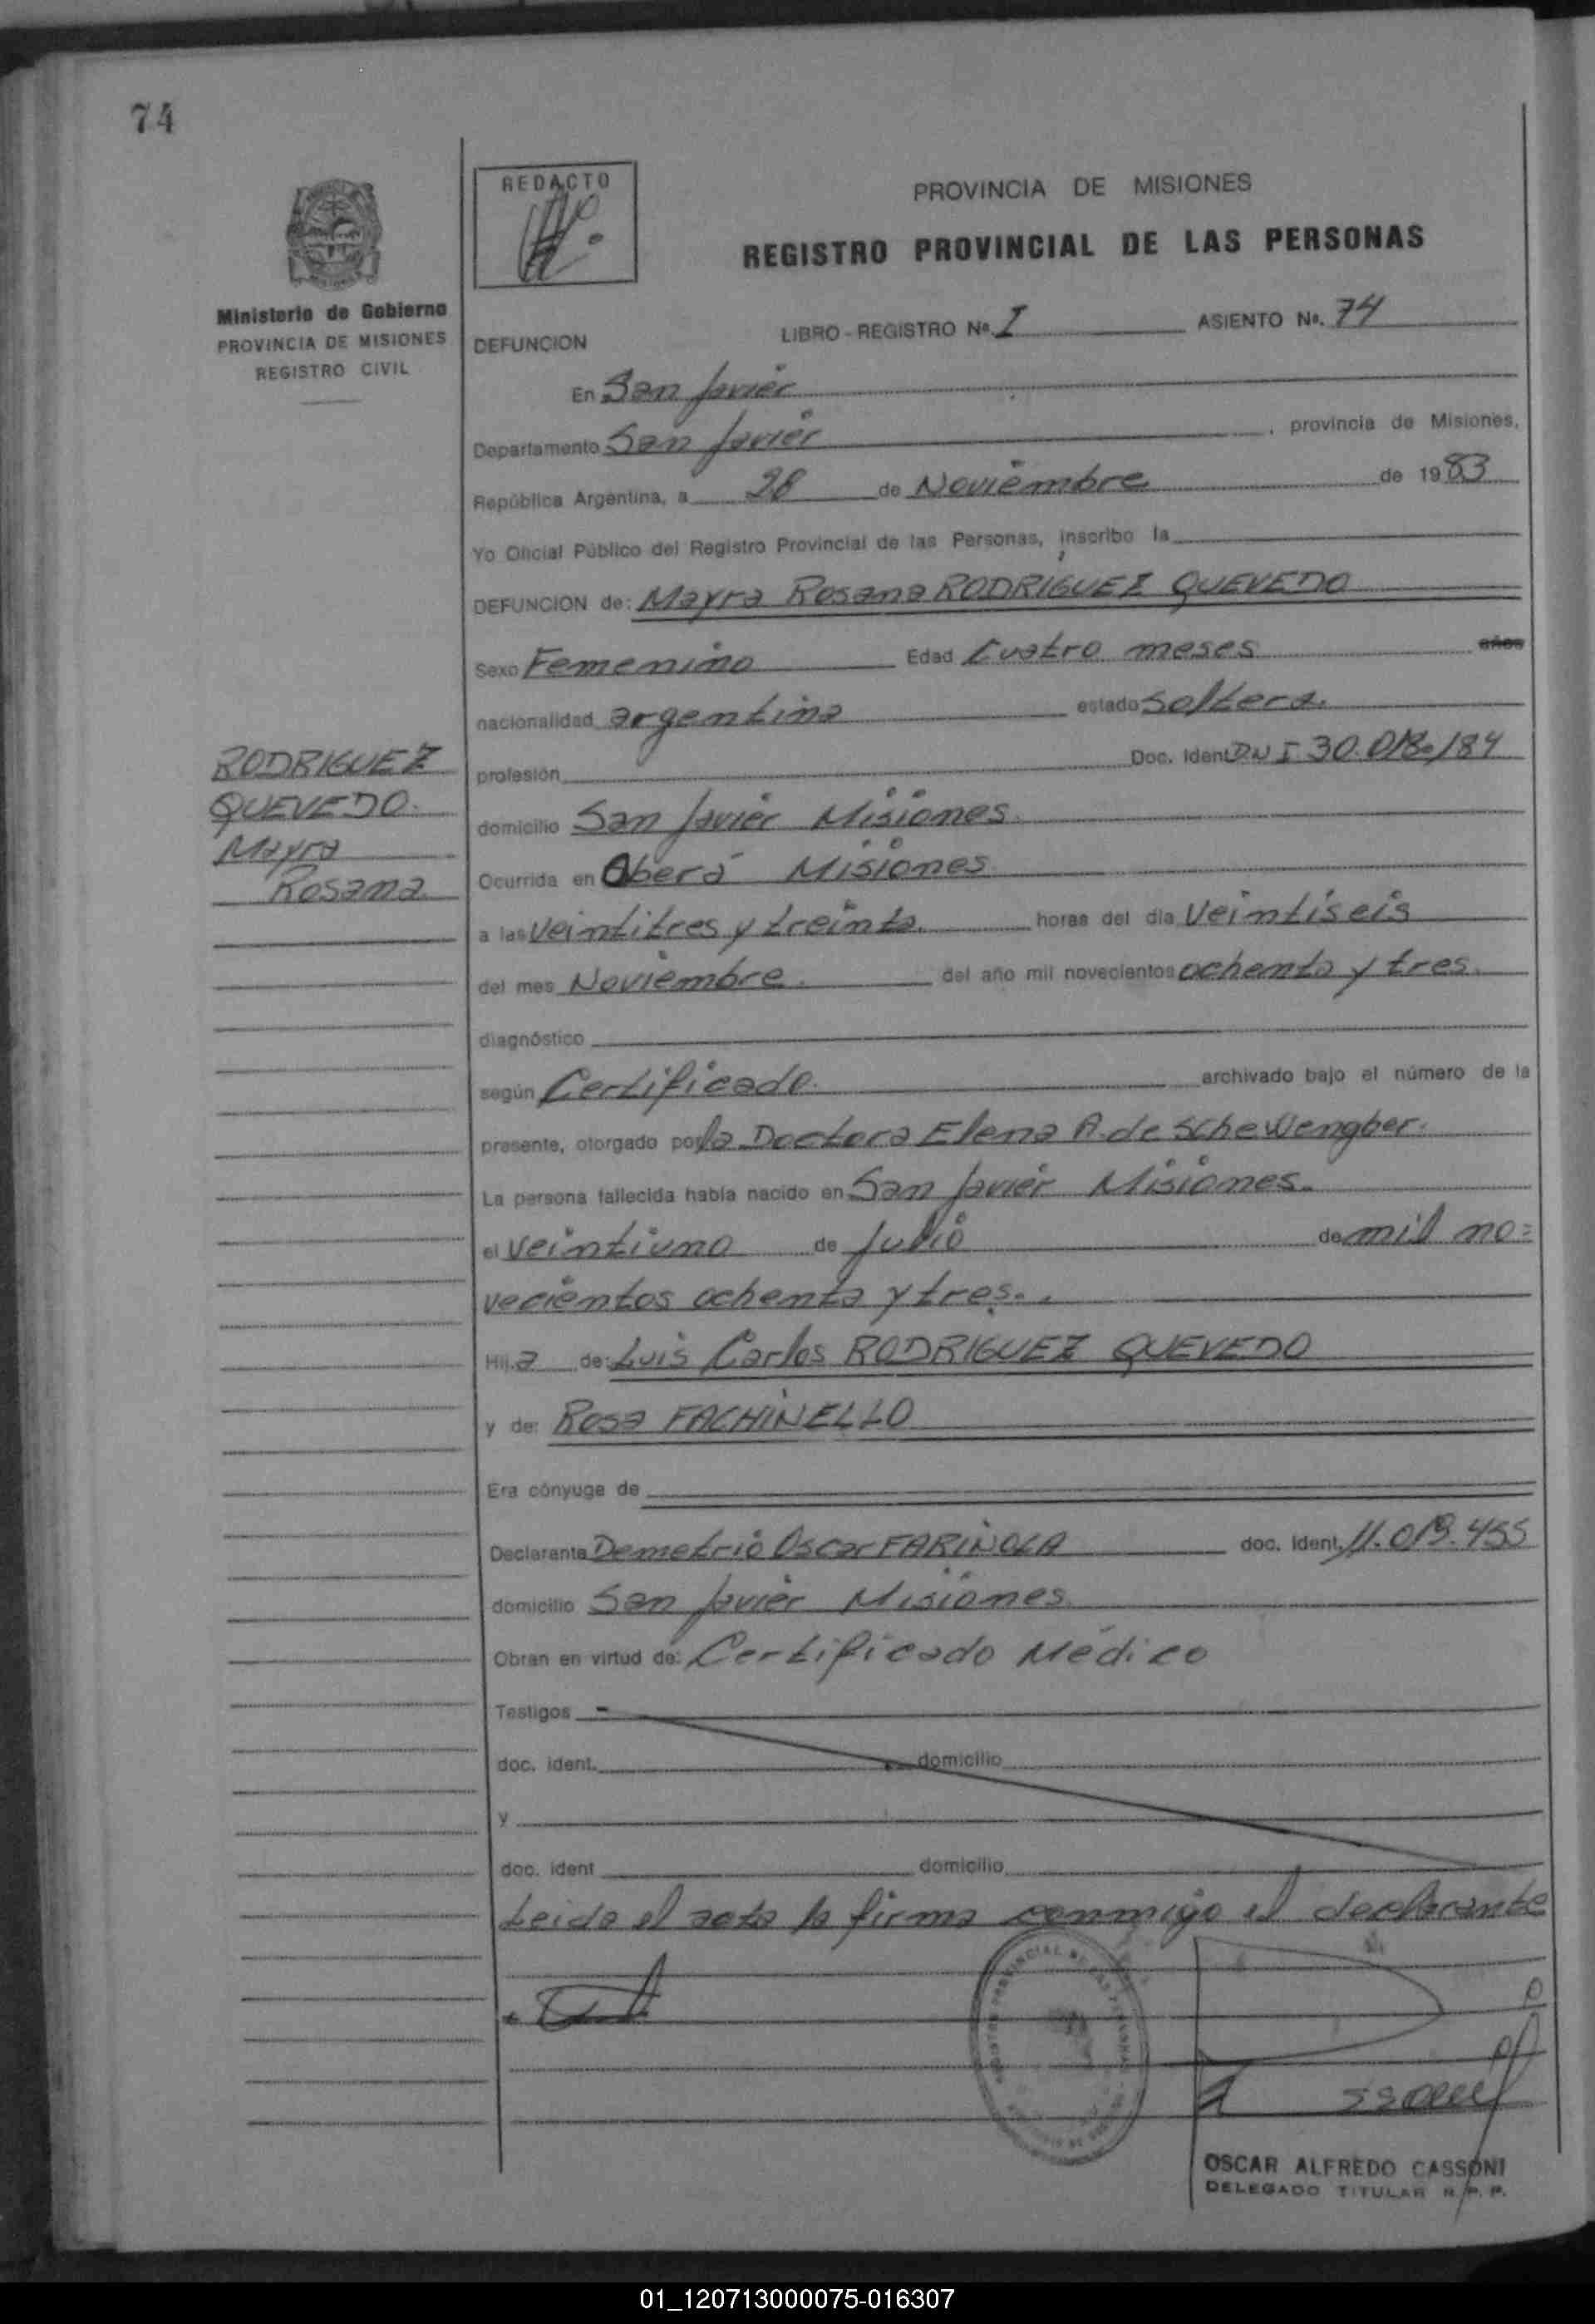 74
REDACTO
PROVINCIA DE MISIONES
REGISTRO PROVINCIAL DE LAS PERSONAS
Ministerio de Gobierno
PROVINCIA DE MISIONES
REGISTRO CIVIL
DEFUNCION LIBRO - REGISTRO Nº. I ASIENTO Nº. 74
En San Javier
Departamento San Javier, provincia de Misiones,
República Argentina, a 28 de Noviembre de 1983
Yo Oficial Público del Registro Provincial de las Personas, inscribo la
DEFUNCION de: Mayra Rosana RODRIGUEZ QUEVEDO
Sexo Femenino Edad Cuatro meses años
nacionalidad argentina estado soltera.
profesión Doc. Ident DNI 30.018.184
RODRIGUEZ
QUEVEDO.
Mayra
Rosana
domicilio San Javier Misiones.
Ocurrida en Oberá Misiones.
a las veintitres y treinta. horas del día veintiseis
del mes Noviembre. del año mil novecientos ochenta y tres.
diagnóstico
según Certificado. archivado bajo el número de la
presente, otorgado por la Doctora Elena A. de Schewengber.
La persona fallecida había nacido en San Javier Misiones.
el veintiuno de Julio de mil no=
vecientos ochenta y tres..
Hij a de: Luis Carlos RODRIGUEZ QUEVEDO
y de: Rosa FACHINELLO
Era cónyuge de
Declarante Demetrio Oscar FARIÑOLA doc. Ident. 11.019.455
domicilio San Javier Misiones.
Obran en virtud de: Certificado Médico
Testigos -
doc. ident. domicilio
y
doc. ident domicilio
Leida el acta la firma conmigo el declarante
OSCAR ALFREDO CASSONI
DELEGADO TITULAR R. P. P.
01_120713000075-016307